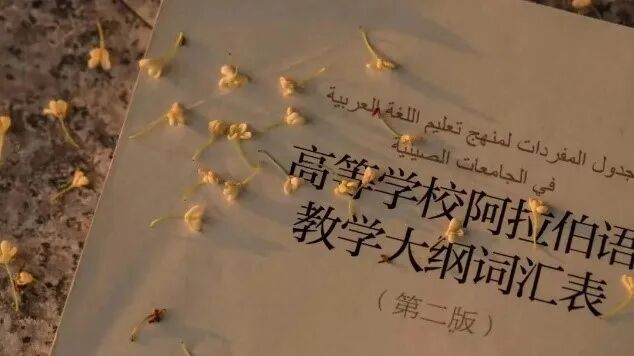 جدول المفردات لمنهج تعليم اللغة العربية
في الجامعات الصينية
高等学校阿拉伯语
教学大纲词汇表
（第二版）